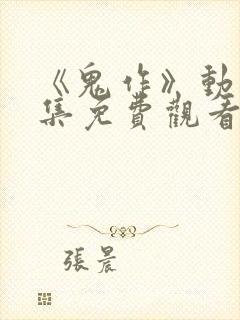 《鬼作》動
集免費觀看
張晨